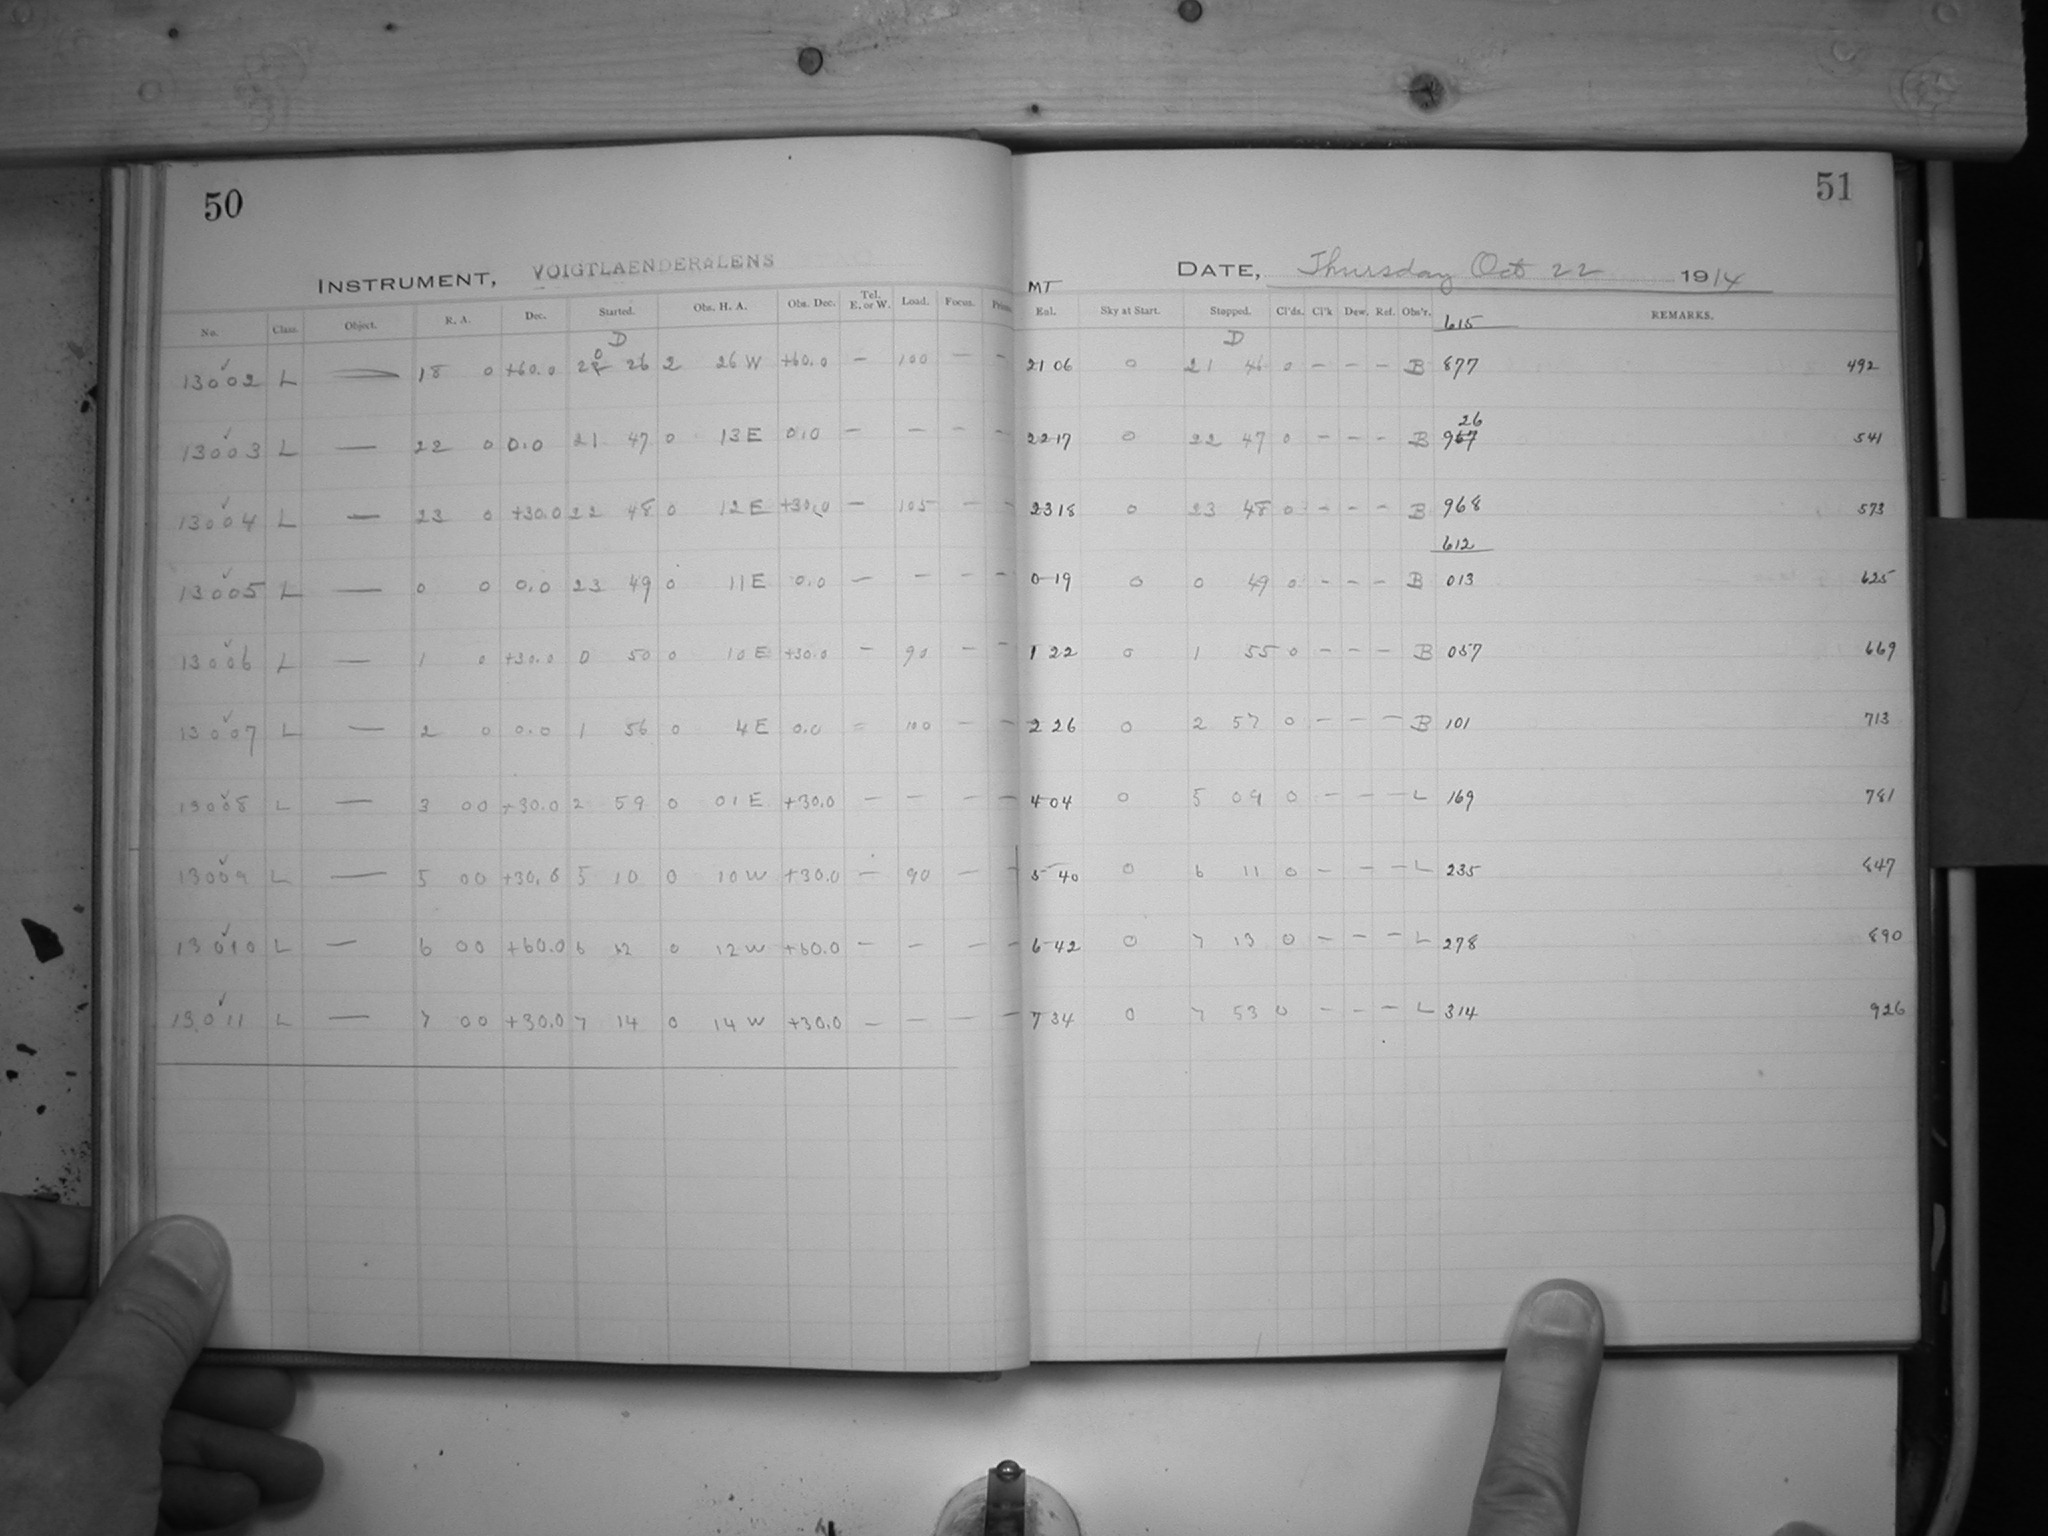 50
INSTRUMENT, VOIGTLAENDER LENS
No. Class. Object. R. A. Dec. Started. Obs. H. A. Obs. Dec. Tel. E. or W. Load. Focus.
D
13002 L — 18 0 +60.0 20 26 2 26 W +60.0 — 100 — —
13003 L — 22 0 0.0 21 47 0 13 E 0.0 — — — —
13004 L — 23 0 +30.0 22 48 0 12 E +30.0 — 105 — —
13005 L — 0 0 0.0 23 49 0 11 E 0.0 — — — —
13006 L — 1 0 +30.0 0 50 0 10 E +30.0 — 90 — —
13007 L — 2 0 0.0 1 56 0 4 E 0.0 = 100 — —
13008 L — 3 00 +30.0 2 59 0 01 E +30.0 — — — —
13009 L — 5 00 +30.0 5 10 0 10 W +30.0 — 90 — —
13010 L — 6 00 +60.0 6 12 0 12 W +60.0 — — — —
13011 L — 7 00 +30.0 7 14 0 14 W +30.0 — — — —
51
DATE, Thursday Oct 22 1914
MT
Eql. Sky at Start. Stopped. Cl'ds. Cl'k Dew. Ref. Obs'r. REMARKS.
615
D
21 06 0 21 46 0 — — — B 877 492
26
22 17 0 22 47 0 — — — B 957 541
23 18 0 23 48 0 — — — B 968 573
612
0 19 0 0 49 0 — — — B 013 625
1 22 0 1 55 0 — — — B 057 669
2 26 0 2 57 0 — — — B 101 713
4 04 0 5 09 0 — — — L 169 781
5 40 0 6 11 0 — — — L 235 847
6 42 0 7 13 0 — — — L 278 890
7 34 0 7 53 0 — — — L 314 926